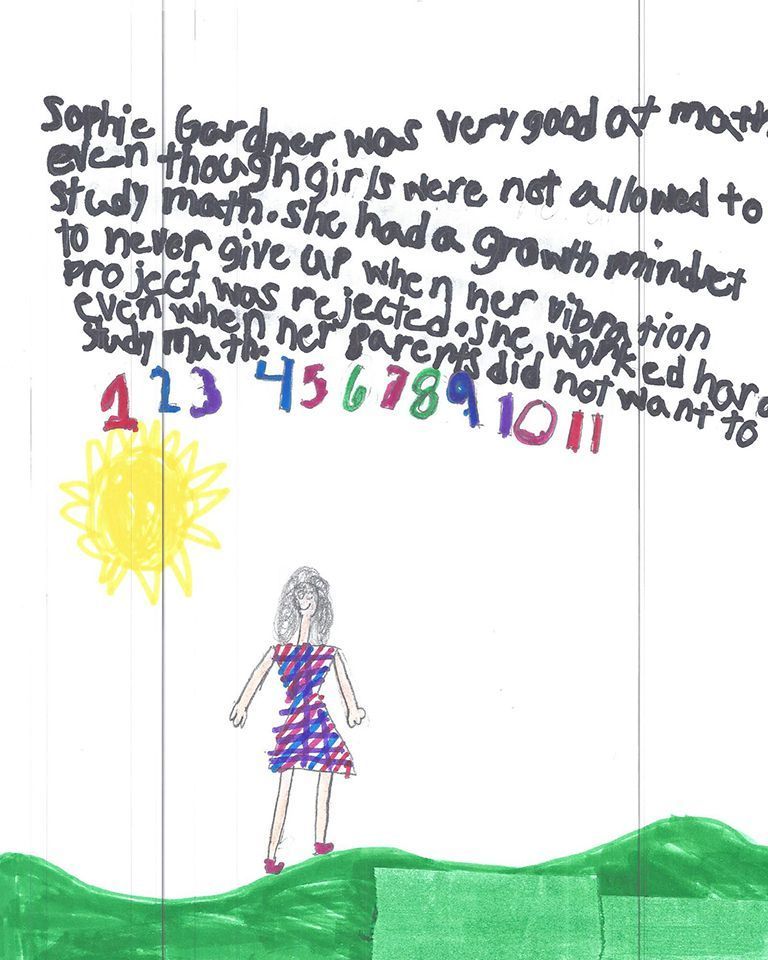 Sophie Gardner was very good at math
even though girls were not allowed to
study math. she had a growth mindset
to never give up when her vibration
project was rejected. she worked hard
even when her parents did not want to
study math.
1 2 3 4 5 6 7 8 9 10 11